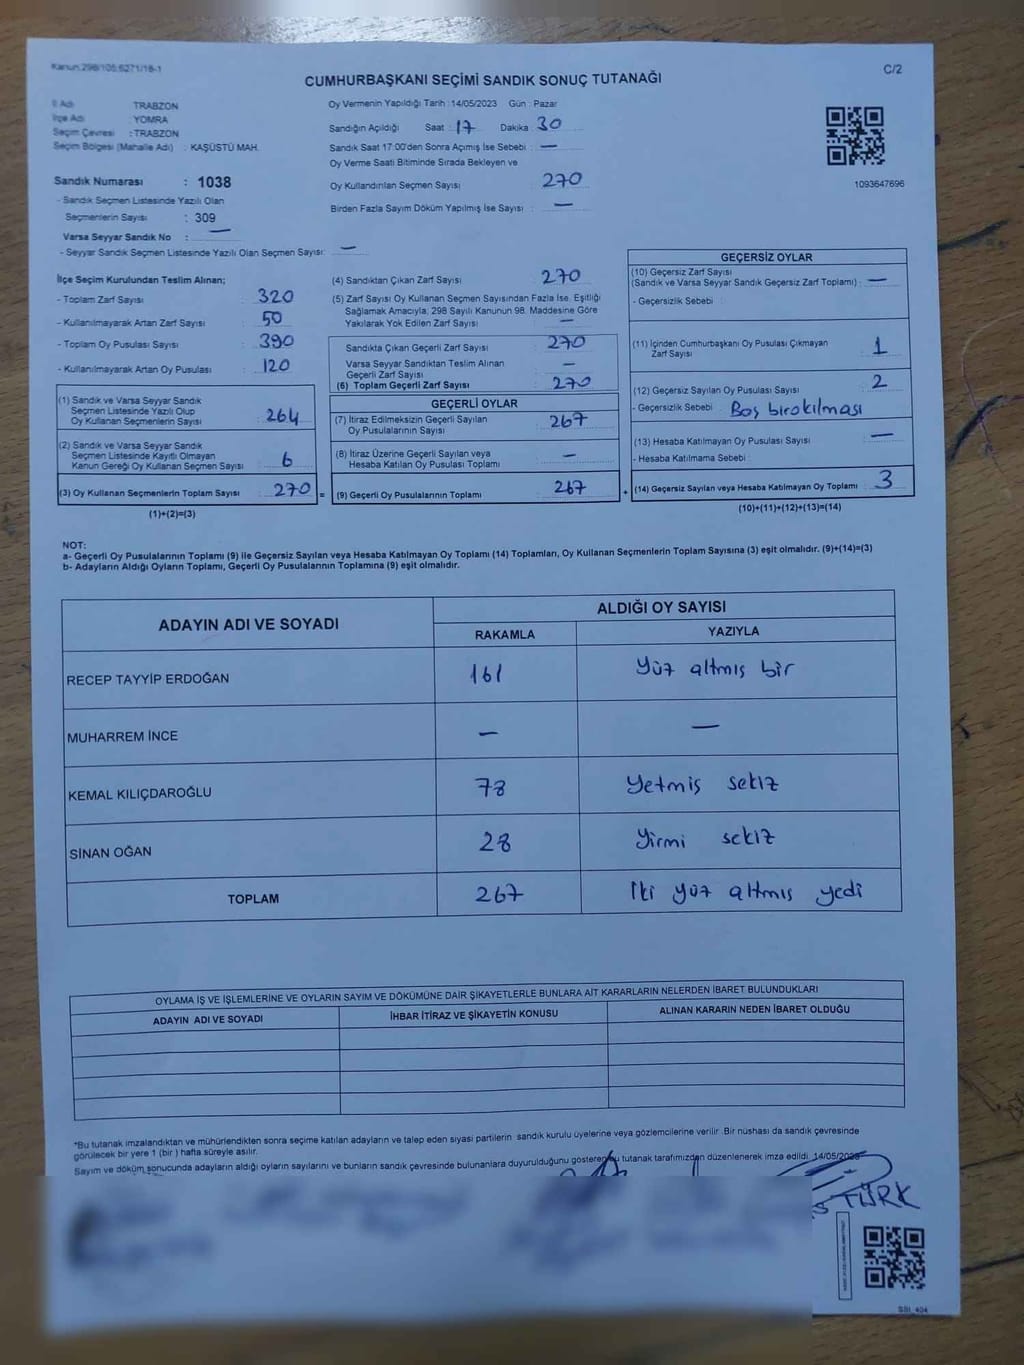 Kanun:298/105;6271/18-1
C/2
CUMHURBAŞKANI SEÇİMİ SANDIK SONUÇ TUTANAĞI
İl Adı TRABZON
İlçe Adı : YOMRA
Seçim Çevresi : TRABZON
Seçim Bölgesi (Mahalle Adı) : KAŞÜSTÜ MAH.
Oy Vermenin Yapıldığı Tarih : 14/05/2023 Gün : Pazar
Sandığın Açıldığı Saat : 17 Dakika : 30
Sandık Saat 17:00'den Sonra Açımış İse Sebebi : —
Oy Verme Saati Bitiminde Sırada Bekleyen ve
Oy Kullandırılan Seçmen Sayısı 270
Birden Fazla Sayım Döküm Yapılmış İse Sayısı : —
1093647696
Sandık Numarası : 1038
- Sandık Seçmen Listesinde Yazılı Olan
Seçmenlerin Sayısı : 309
Varsa Seyyar Sandık No : —
- Seyyar Sandık Seçmen Listesinde Yazılı Olan Seçmen Sayısı: —
İlçe Seçim Kurulundan Teslim Alınan;
- Toplam Zarf Sayısı : 320
- Kullanılmayarak Artan Zarf Sayısı : 50
- Toplam Oy Pusulası Sayısı : 390
- Kullanılmayarak Artan Oy Pusulası : 120
(1) Sandık ve Varsa Seyyar Sandık
Seçmen Listesinde Yazılı Olup
Oy Kullanan Seçmenlerin Sayısı : 264
(2) Sandık ve Varsa Seyyar Sandık
Seçmen Listesinde Kayıtlı Olmayan
Kanun Gereği Oy Kullanan Seçmen Sayısı : 6
(3) Oy Kullanan Seçmenlerin Toplam Sayısı : 270 =
(1)+(2)=(3)
(4) Sandıktan Çıkan Zarf Sayısı : 270
(5) Zarf Sayısı Oy Kullanan Seçmen Sayısından Fazla İse, Eşitliği
Sağlamak Amacıyla, 298 Sayılı Kanunun 98. Maddesine Göre
Yakılarak Yok Edilen Zarf Sayısı : —
Sandıkta Çıkan Geçerli Zarf Sayısı : 270
Varsa Seyyar Sandıktan Teslim Alınan
Geçerli Zarf Sayısı : —
(6) Toplam Geçerli Zarf Sayısı : 270
GEÇERLİ OYLAR
(7) İtiraz Edilmeksizin Geçerli Sayılan
Oy Pusulalarının Sayısı : 267
(8) İtiraz Üzerine Geçerli Sayılan veya
Hesaba Katılan Oy Pusulası Toplamı : —
(9) Geçerli Oy Pusulalarının Toplamı : 267 +
GEÇERSİZ OYLAR
(10) Geçersiz Zarf Sayısı
(Sandık ve Varsa Seyyar Sandık Geçersiz Zarf Toplamı) : —
- Geçersizlik Sebebi :
(11) İçinden Cumhurbaşkanı Oy Pusulası Çıkmayan
Zarf Sayısı : 1
(12) Geçersiz Sayılan Oy Pusulası Sayısı : 2
- Geçersizlik Sebebi : Boş bırakılması
(13) Hesaba Katılmayan Oy Pusulası Sayısı : —
- Hesaba Katılmama Sebebi :
(14) Geçersiz Sayılan veya Hesaba Katılmayan Oy Toplamı : 3
(10)+(11)+(12)+(13)=(14)
NOT:
a- Geçerli Oy Pusulalarının Toplamı (9) ile Geçersiz Sayılan veya Hesaba Katılmayan Oy Toplamı (14) Toplamları, Oy Kullanan Seçmenlerin Toplam Sayısına (3) eşit olmalıdır. (9)+(14)=(3)
b- Adayların Aldığı Oyların Toplamı, Geçerli Oy Pusulalarının Toplamına (9) eşit olmalıdır.
ADAYIN ADI VE SOYADI
ALDIĞI OY SAYISI
RAKAMLA YAZIYLA
RECEP TAYYİP ERDOĞAN 161 Yüz altmış bir
MUHARREM İNCE — —
KEMAL KILIÇDAROĞLU 78 Yetmiş sekiz
SİNAN OĞAN 28 Yirmi sekiz
TOPLAM 267 İki yüz altmış yedi
OYLAMA İŞ VE İŞLEMLERİNE VE OYLARIN SAYIM VE DÖKÜMÜNE DAİR ŞİKAYETLERLE BUNLARA AİT KARARLARIN NELERDEN İBARET BULUNDUKLARI
ADAYIN ADI VE SOYADI İHBAR İTİRAZ VE ŞİKAYETİN KONUSU ALINAN KARARIN NEDEN İBARET OLDUĞU
*Bu tutanak imzalandıktan ve mühürlendikten sonra seçime katılan adayların ve talep eden siyasi partilerin sandık kurulu üyelerine veya gözlemcilerine verilir .Bir nüshası da sandık çevresinde
görülecek bir yere 1 (bir ) hafta süreyle asılır.
Sayım ve döküm sonucunda adayların aldığı oyların sayılarını ve bunların sandık çevresinde bulunanlara duyurulduğunu gösteren bu tutanak tarafımızdan düzenlenerek imza edildi. 14/05/2023
TÜRK
SSI_404